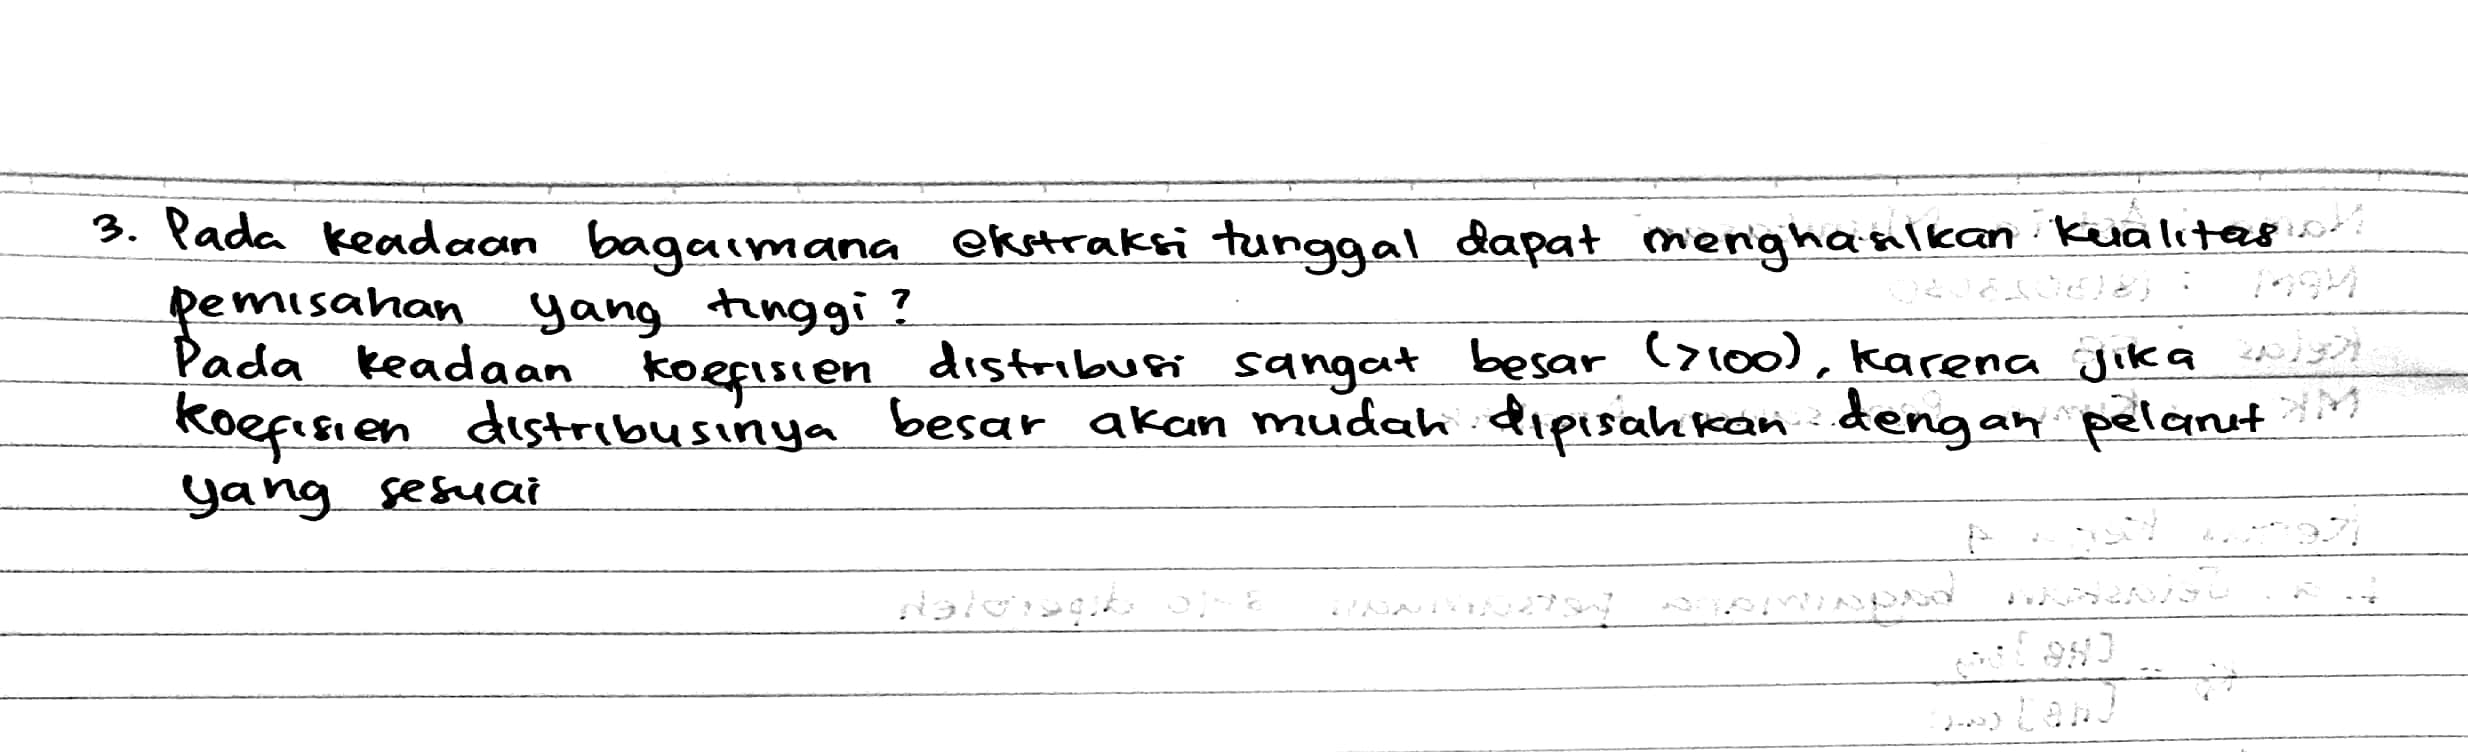 3. Pada keadaan bagaimana ekstraksi tunggal dapat menghasilkan kualitas
pemisahan yang tinggi?
Pada keadaan koefisien distribusi sangat besar (>100), karena jika
koefisien distribusinya besar akan mudah dipisahkan dengan pelarut
yang sesuai